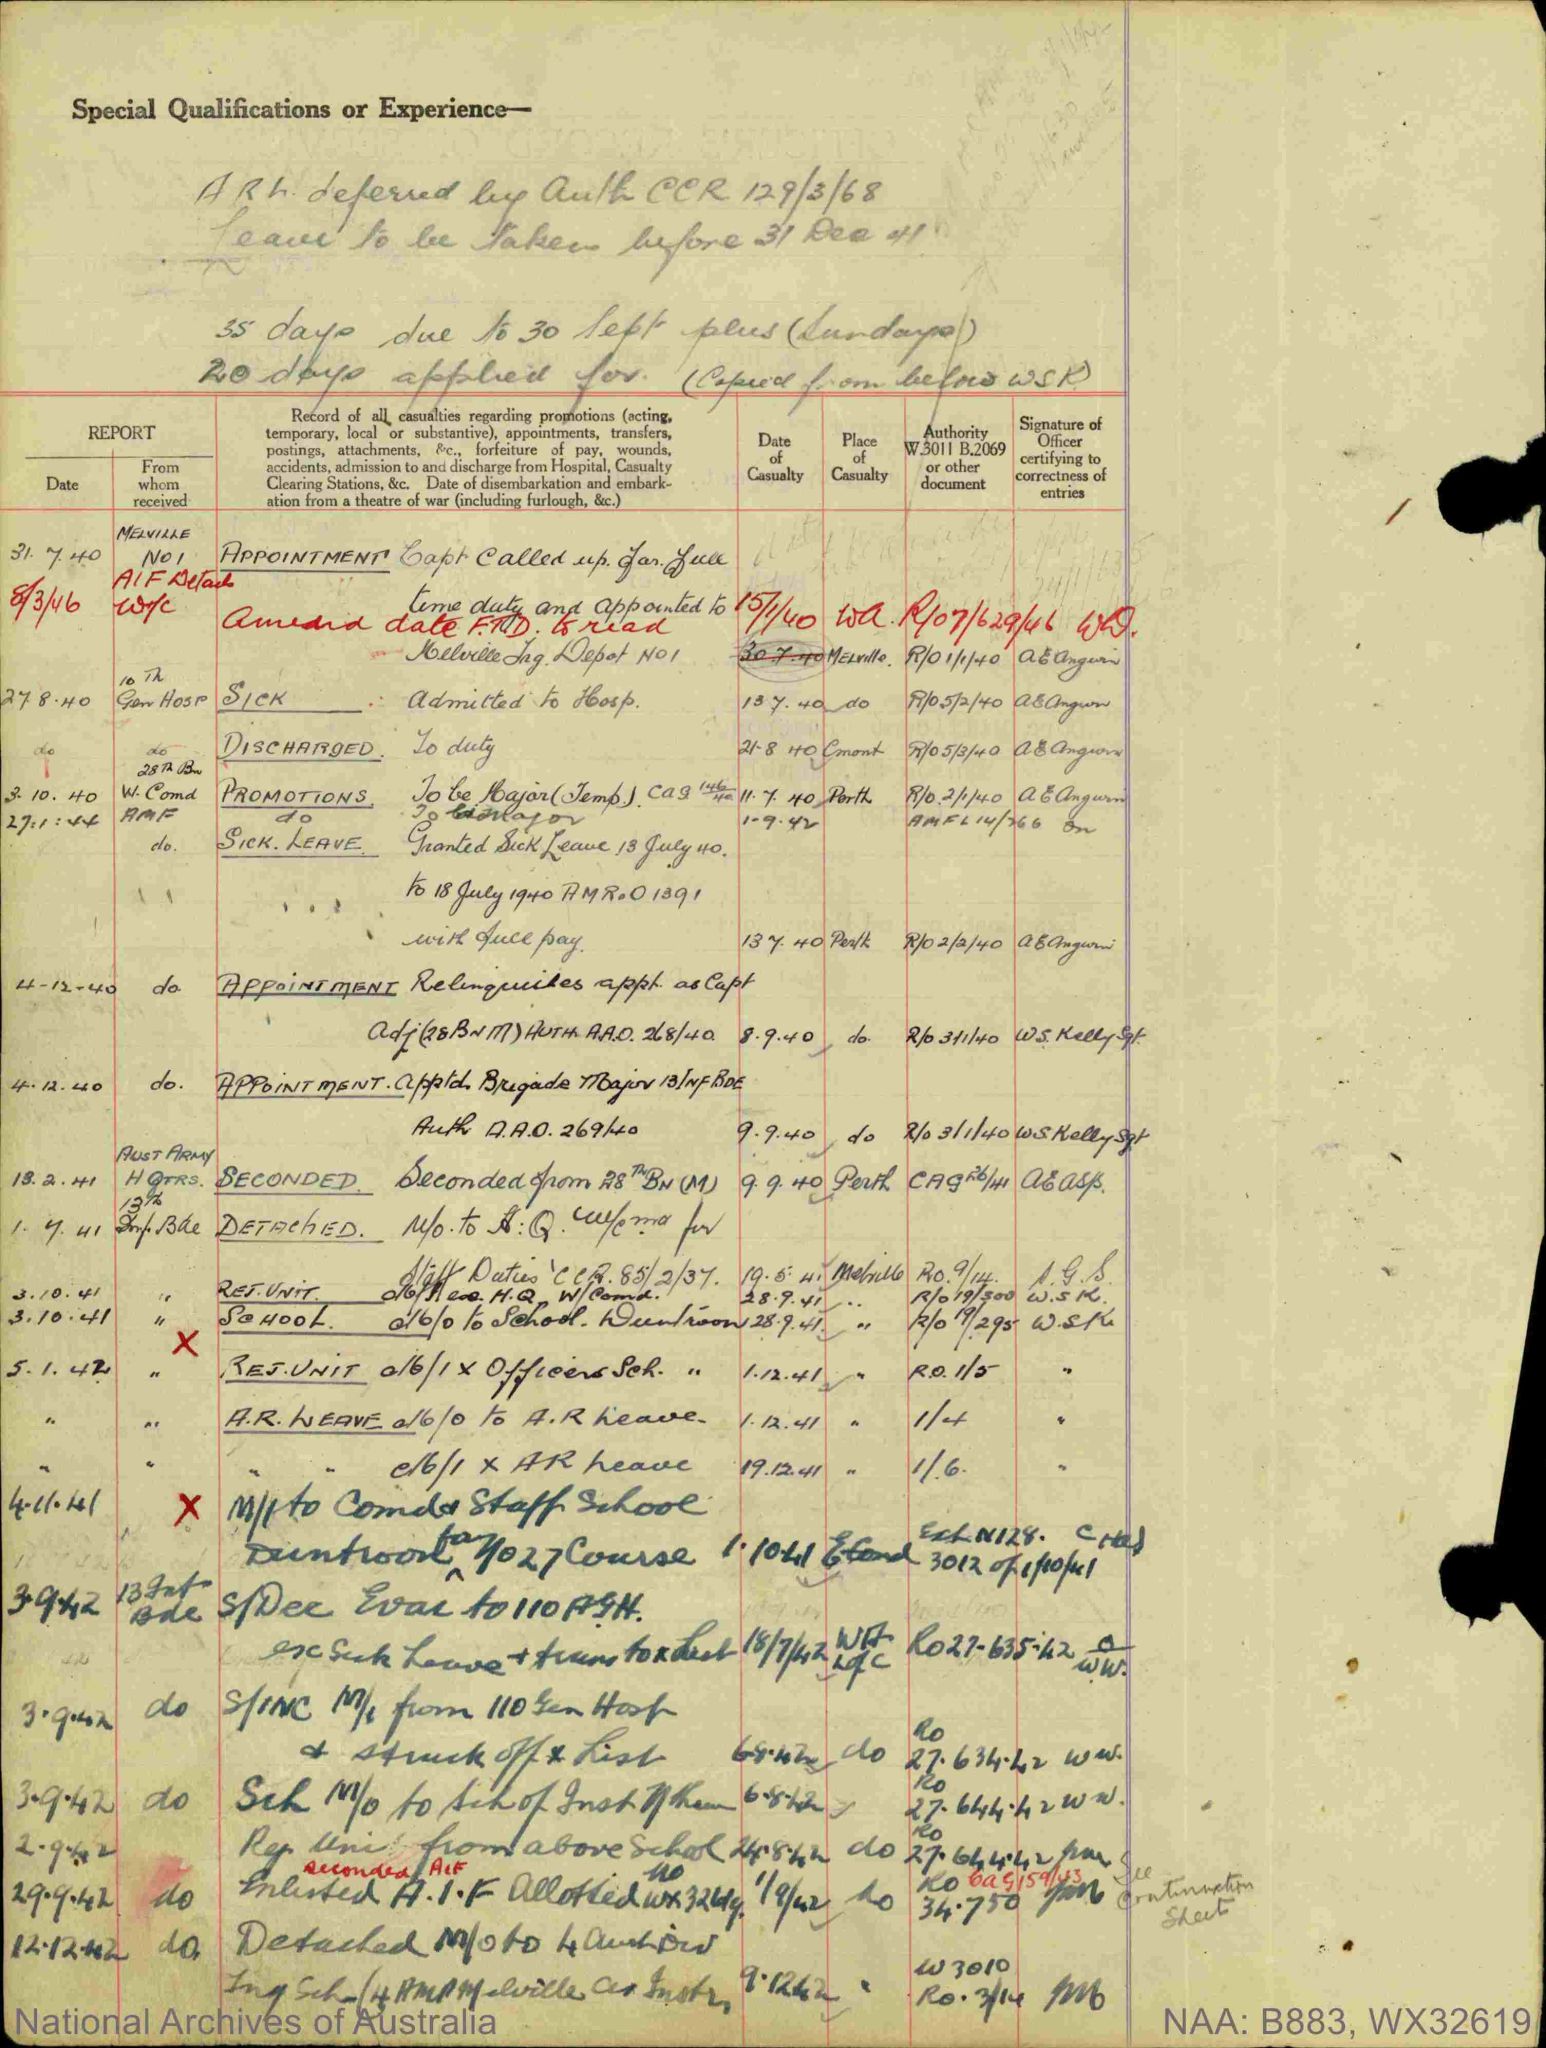 Special Qualifications or Experience—
A R L. deferred by Auth CCR 129/3/68
Leave to be taken before 31 Dec 41
35 days due to 30 Sept plus (Sundays)
20 days applied for. (Copied from below WSK)
REPORT
Date
From whom received
Record of all casualties regarding promotions (acting,
temporary, local or substantive), appointments, transfers,
postings, attachments, &c., forfeiture of pay, wounds,
accidents, admission to and discharge from Hospital, Casualty
Clearing Stations, &c. Date of disembarkation and embark-
ation from a theatre of war (including furlough, &c.)
Date of Casualty
Place of Casualty
Authority W.3011 B.2069 or other document
Signature of Officer certifying to correctness of entries
MELVILLE
31.7.40 NO 1 APPOINTMENT Capt Called up. for full
AIF Details
8/3/46 W/C time duty and appointed to 15/1/40 WA. R/O 7/629/46
Amend date F.T.D. to read
Melville Trg. Depot NO 1 30.7.40 Melville. R/O 1/1/40 A E Angwin
10 Th
27 8.40 Gen Hosp SICK Admitted to Hosp. 13 7.40 do R/O 5/2/40 A E Angwin
do do DISCHARGED. To duty 21-8 40 Cmont R/O 5/3/40 A E Angwin
28 Th Bn
3.10.40 W. Comd PROMOTIONS. To be Major (Temp). CAG 146/40 11.7.40 Perth R/O.2/1/40 A E Angwin
27:1:44 AMF do To be Major 1-9.42 AMFL 14/266
do. SICK. LEAVE. Granted Sick Leave 13 July 40.
to 18 July 1940 AMR.O 1391
with full pay. 13 7.40 Perth R/O 2/2/40 A E Angwin
4-12-40 do APPOINTMENT Relinquishes appt. as Capt
Adj (28 BN M) AUTH. A.A.O. 268/40. 8.9.40 do. R/O 3/1/40 W.S. Kelly Sgt
4.12.40 do. APPOINTMENT. Apptd. Brigade Major 13 INF BDE
Auth A.A.O. 269/40 9.9.40 do R/O 3/1/40 W S Kelly Sgt
AUST ARMY
13.2.41 H QTRS. SECONDED. Seconded from 28TH BN (M) 9.9.40 Perth CAG 26/41
13th
1.7.41 Inf. Bde DETACHED. M/O. to H.Q. W/Cmd for
Staff Duties CCR. 85/2/37. 19.5.41 Melville RO. 9/14. A.G.S.
3.10.41 " REJ. UNIT. H.Q. W/Comd. 28.9.41 " R/O 19/300 W.S.K.
3.10.41 " SCHOOL. d16/0 to School. Duntroon 28.9.41 " R/O 19/295 W.S.K.
X
5.1.42 " REJ. UNIT d16/1 X Officers Sch. " 1.12.41 " R.O. 1/5 "
" " A.R. LEAVE d16/0 to A.R Leave. 1.12.41 " 1/4 "
" " " " d16/1 X AR Leave 19.12.41 " 1/6. "
4.11.41 X M/I to Comd & Staff School
Duntroon for 7/027 Course 1.10.41 3012 of 1/10/41
3.9.42 13 Inf Bde S/Dec Evac to 110 AGH.
Sick Leave + trans to x List 18/7/42 WA L of C Ro 27-635.42 WW.
3.9.42 do S/INC M/I from 110 Gen Hosp
& struck off x List 6.8.42 do Ro 27.634.42 WW.
3.9.42 do Sch M/O to Sch of Inst 6.8.42 Ro 27.644.42 WW.
2.9.42 Rej Unit from above School 24.8.42 do Ro 27.644.42
seconded AIF
29.9.42 do Enlisted A.I.F Allotted No WX32619. 1/9/42 do Ro CAG 159/43 34.750
See Continuation Sheet
12.12.42 do. Detached M/O to 4 Aust Div
Trg Sch Melville as Instr. 9.12.42 " W 3010 Ro. 3/14
National Archives of Australia
NAA: B883, WX32619